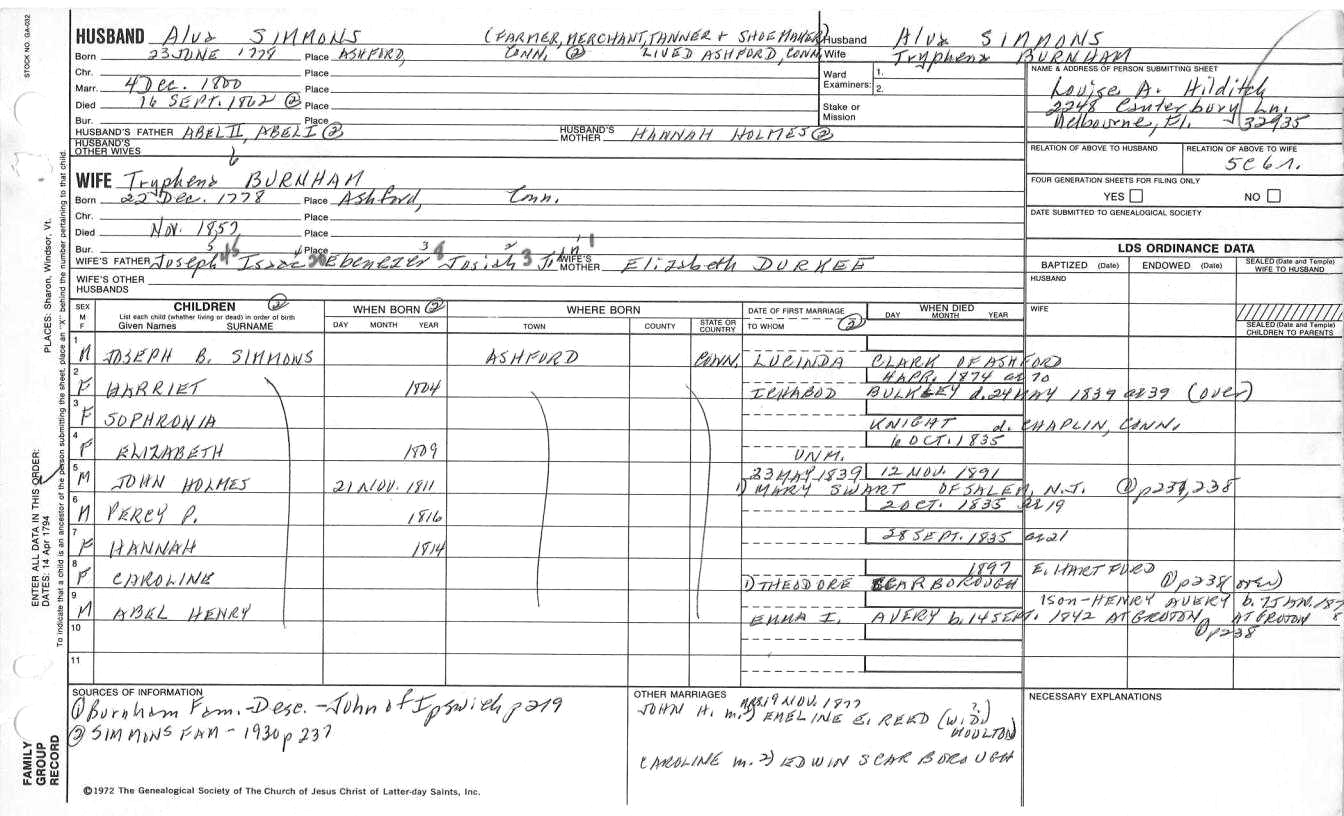 STOCK NO. GA-032
HUSBAND Alva SIMMONS (FARMER, MERCHANT, TANNER + SHOEMAKER)
Born 23 JUNE 1779 Place ASHFORD, CONN. ② LIVED ASHFORD, CONN.
Chr. Place
Marr. 4 Dec. 1800 Place
Died 16 SEPT. 1862 ② Place
Bur. Place
HUSBAND'S FATHER ABEL II, ABEL I ② HUSBAND'S MOTHER HANNAH HOLMES ②
HUSBAND'S OTHER WIVES
Husband Alva SIMMONS
Wife Tryphena BURNHAM
Ward Examiners: 1. 2.
Stake or Mission
NAME & ADDRESS OF PERSON SUBMITTING SHEET
Louise A. Hilditch
2248 Canterbury Ln.
Melbourne, Fl. 32935
RELATION OF ABOVE TO HUSBAND RELATION OF ABOVE TO WIFE
5C6r.
FOUR GENERATION SHEETS FOR FILING ONLY
YES NO
DATE SUBMITTED TO GENEALOGICAL SOCIETY
6
WIFE Tryphena BURNHAM
Born 22 Dec. 1778 Place Ashford, Conn.
Chr. Place
Died Nov. 1857 Place
Bur. Place
WIFE'S FATHER Joseph Isaac Ebenezer Josiah John WIFE'S MOTHER Elizabeth DURKEE
WIFE'S OTHER HUSBANDS
LDS ORDINANCE DATA
BAPTIZED (Date) ENDOWED (Date) SEALED (Date and Temple) WIFE TO HUSBAND
HUSBAND
WIFE
SEALED (Date and Temple) CHILDREN TO PARENTS
SEX M F CHILDREN ② List each child (whether living or dead) in order of birth Given Names SURNAME
WHEN BORN ② DAY MONTH YEAR
WHERE BORN TOWN COUNTY STATE OR COUNTRY
DATE OF FIRST MARRIAGE TO WHOM ②
WHEN DIED DAY MONTH YEAR
1 M JOSEPH B. SIMMONS ASHFORD CONN. LUCINDA CLARK OF ASHFORD
4 APR. 1874 ae 70
2 F HARRIET 1804 ICHABOD BULKLEY d. 24 MAY 1839 ae 39 (over)
3 F SOPHRONIA KNIGHT d. CHAPLIN, CONN.
6 OCT. 1835
4 F ELIZABETH 1809 UNM.
23 MAY 1839 12 NOV. 1891
5 M JOHN HOLMES 21 NOV. 1811 1) MARY SWART OF SALEM, N.J. ② p237, 238
2 OCT. 1835 ae 19
6 M PERCY P. 1816
28 SEPT. 1835 ae 21
7 F HANNAH 1814
1897 E. HARTFORD
8 F CAROLINE 1) THEODORE SCARBOROUGH ② p238 (over)
1 son - HENRY AVERY b. 7 JAN. 187
9 M ABEL HENRY EMMA I. AVERY b. 14 SEPT. 1842 AT GROTON, AT GROTON 8
② p238
10
11
SOURCES OF INFORMATION
① Burnham Fam. - Desc. - John of Ipswich p 219
② SIMMONS FAM - 1930 p 237
OTHER MARRIAGES
MRS. 19 NOV. 1877
JOHN H. m. 2) EMELINE E. REED (W.D.? MOULTON)
CAROLINE m. 2) EDWIN SCARBOROUGH
NECESSARY EXPLANATIONS
©1972 The Genealogical Society of The Church of Jesus Christ of Latter-day Saints, Inc.
FAMILY GROUP RECORD
ENTER ALL DATA IN THIS ORDER:
DATES: 14 Apr 1794
PLACES: Sharon, Windsor, Vt.
To indicate that a child is an ancestor of the person submitting the sheet, place an "X" behind the number pertaining to that child.